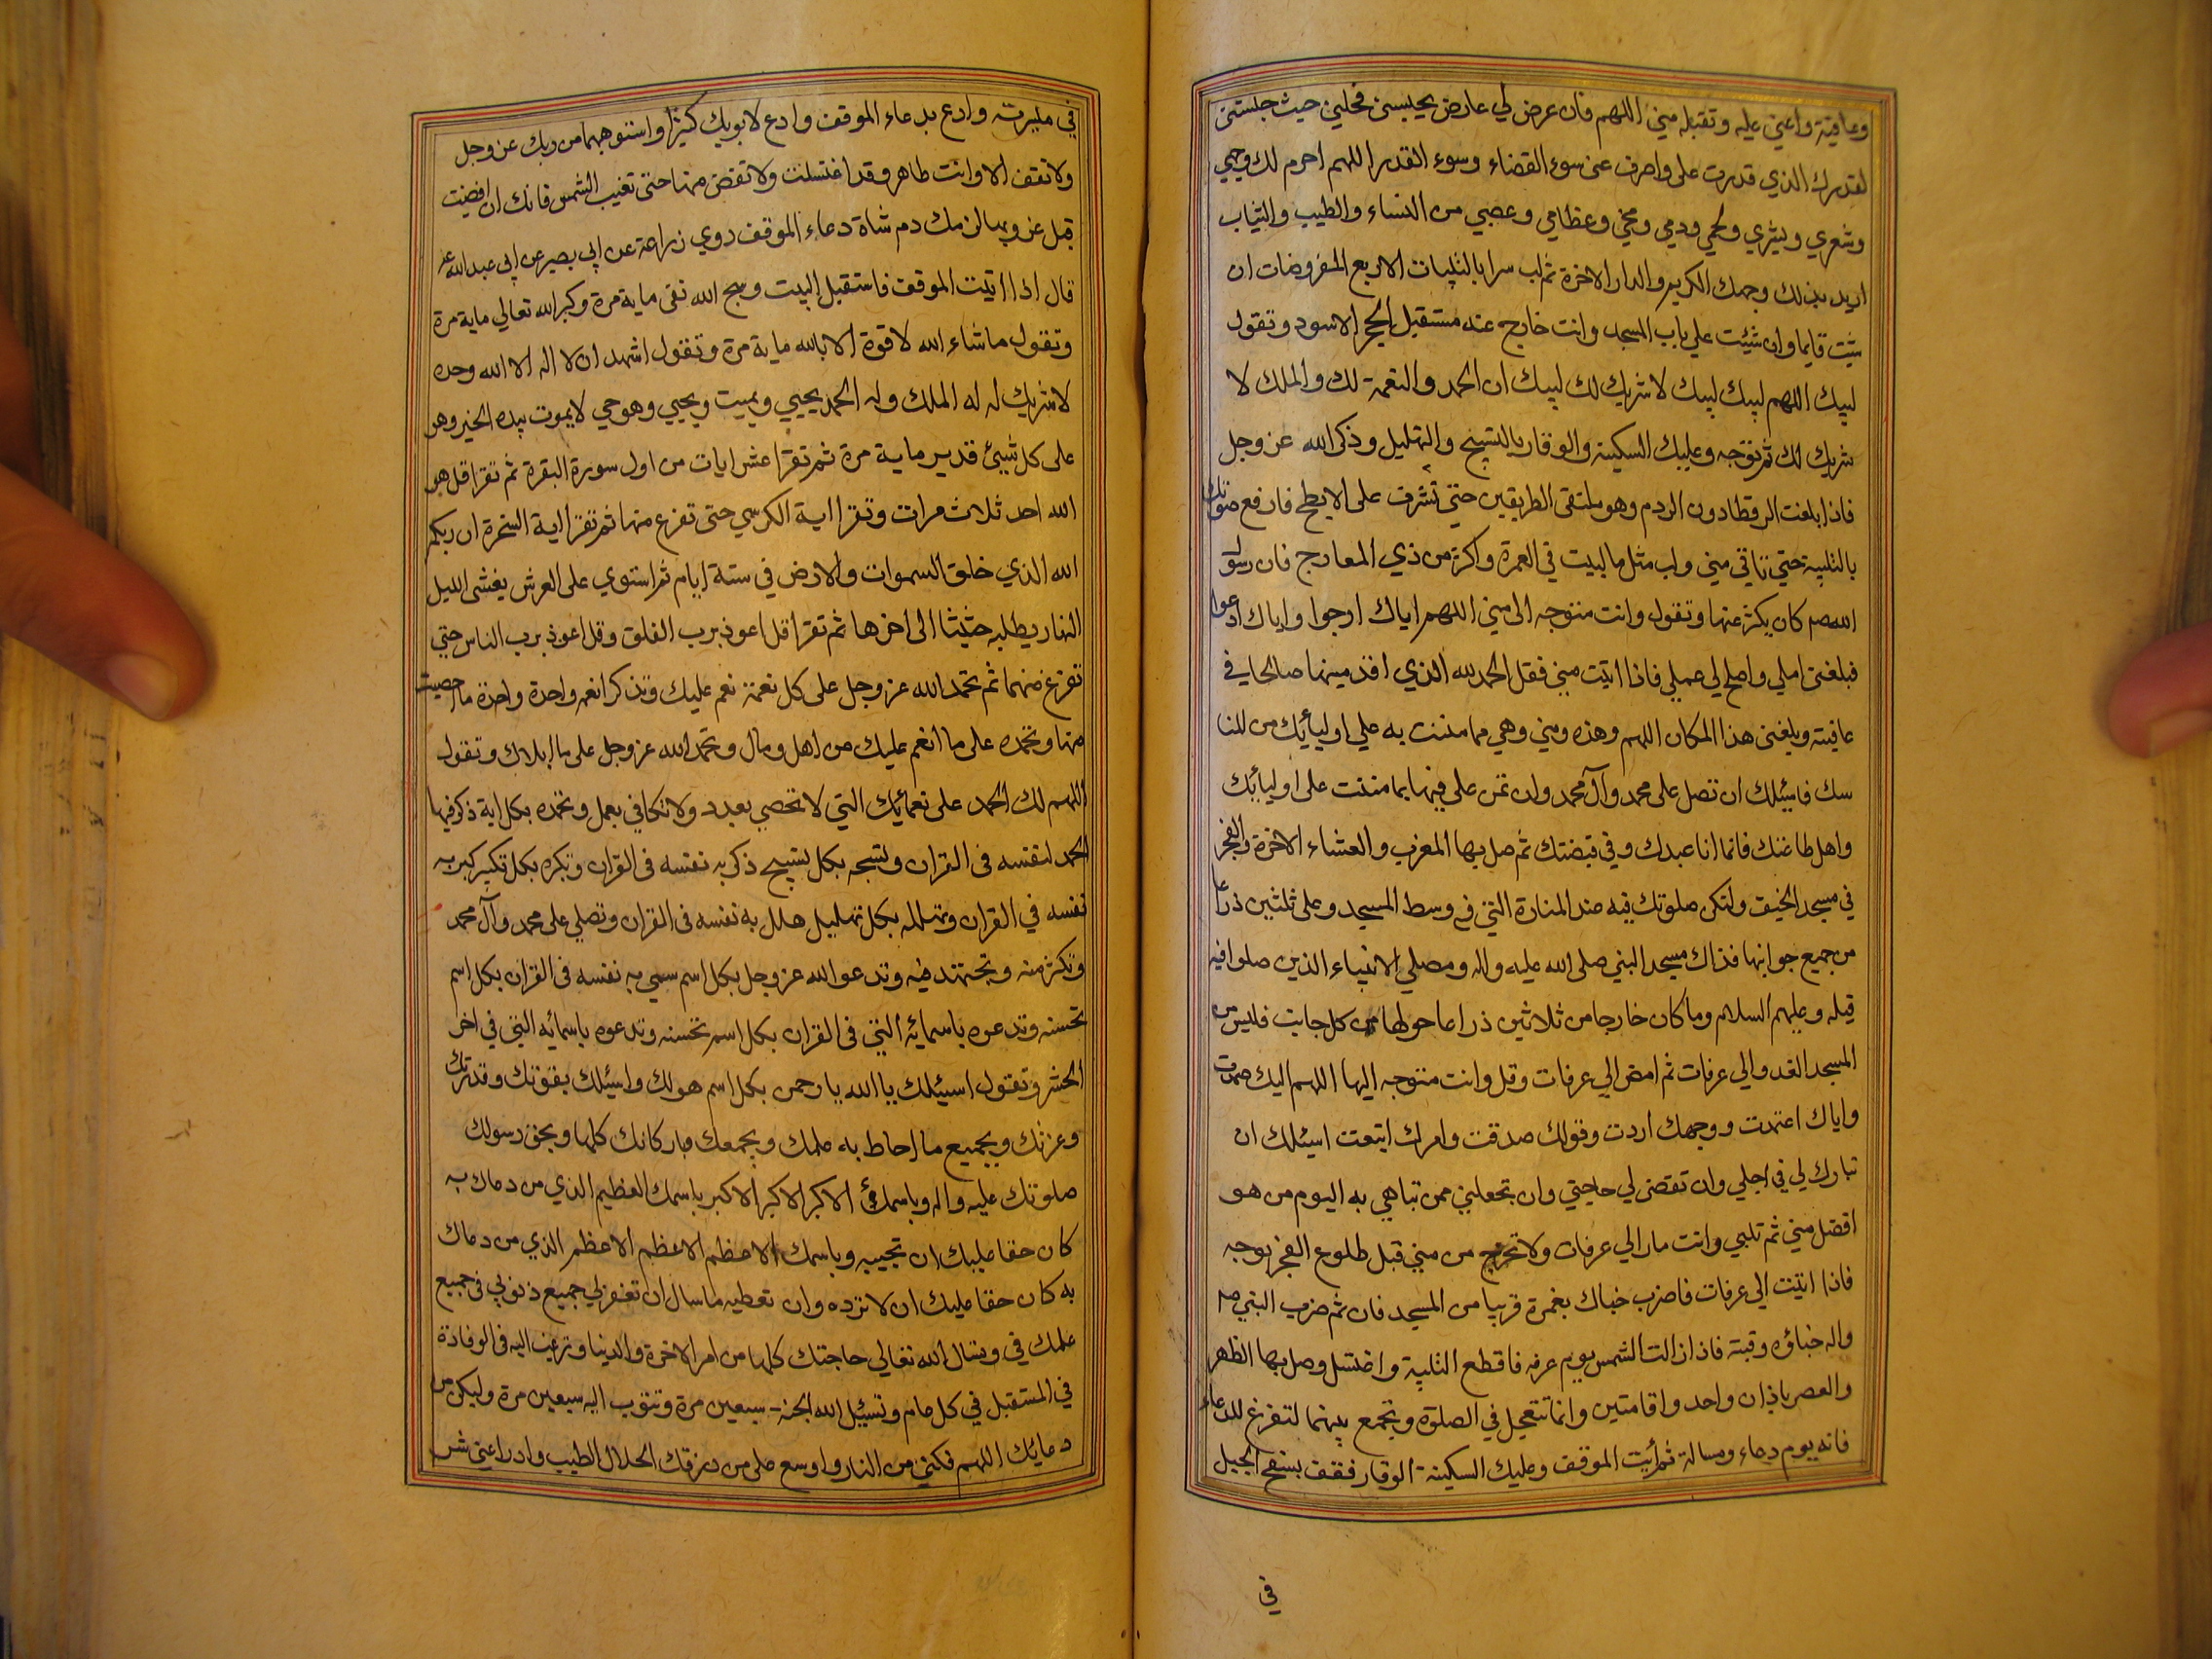 وعافية واعني عليه وتقبله مني اللهم فان عرض لي عارض يحبسني فحلني حيث حبستني
لقدرك الذي قدرت علي واصرف عني سوء القضاء وسوء القدر اللهم احرم لك وجهي
وشعري وبشري ولحمي ودمي ومخي وعظامي وعصبي من النساء والطيب والثياب
اريد بذلك وجهك الكريم والدار الاخرة ثم لب سرا بالتلبيات الاربع المفروضات ان
شئت قايما وان شئت علي باب المسجد وانت خارج عنه مستقبل الحجر الاسود وتقول
لبيك اللهم لبيك لبيك لا شريك لك لبيك ان الحمد والنعمة لك والملك لا
شريك لك ثم توجه وعليك السكينة والوقار بالتسبيح والتهليل وذكر الله عز وجل
فاذا بلغت الرقطا دون الردم وهو ملتقى الطريقين حتي تشرف على الابطح فارفع صوتك
بالتلبية حتي تاتي مني ولب مثل ما لبيت في العمرة واكثر من ذي المعارج فان رسول
الله صم كان يكثر عنها وتقول وانت متوجه الى مني اللهم اياك ارجوا واياك ادعوا
فبلغني املي واصلح لي عملي فاذا اتيت مني فقل الحمد لله الذي اقدمينها صالحا في
عافيته وبلغني هذا المكان اللهم وهذه ومني وهي مما مننت به علي اوليائك من المنا
سك فاسئلك ان تصل على محمد وآل محمد وان تمن علي فيها بما مننت على اوليائك
واهل طاعتك فانما انا عبدك وفي قبضتك ثم صل بها المغرب والعشاء الاخرة والفجر
في مسجد الخيف ولتكن صلوتك فيه عند المنارة التي في وسط المسجد وعلى ثلثين ذراعا
من جميع جوانبها فذاك مسجد النبي صلى الله عليه واله ومصلي الانبياء الذين صلوا فيه
قبله وعليهم السلام وما كان خارجا من ثلاثين ذراعا حولها من كل جانب فليس من
المسجد الغدو الي عرفات ثم امض الي عرفات وقل وانت متوجه اليها اللهم اليك صمدت
واياك اعتمدت ووجهك اردت وقولك صدقت وامرك اتبعت اسئلك ان
تبارك لي في اجلي وان تقضى لي حاجتي وان تجعلني ممن تباهي به اليوم من هو
افضل مني ثم تلبي وانت مار الي عرفات ولا تخرج من مني قبل طلوع الفجر بوجه
فاذا اتيت الي عرفات فاضرب خباك بنمرة قريبا من المسجد فان ثم ضرب النبي صم
واله خباؤه وقبته فاذا زالت الشمس يوم عرفه فاقطع التلبية واغتسل وصل بها الظهر
والعصر باذان واحد واقامتين وانما تتعجل في الصلوة وتجمع بينهما لتفرغ للدعاء
فانه يوم دعاء ومسالة ثم أيت الموقف وعليك السكينة الوقار فقف بسفح الجبل
في
في ميسرته وادع بدعاء الموقف وادع لابويك كثيرا واستوهبهما من ربك عز وجل
ولا تقف الا وانت طاهر وقد اغتسلت ولا تفض منها حتي تغيب الشمس فانك ان افضيت
قبل غروبها لزمك دم شاة دعاء الموقف روي زراعة عن ابي بصير عن ابي عبد الله عم
قال اذا اتيت الموقف فاستقبل البيت وسبح الله تعى ماية مرة وكبر الله تعالي ماية مرة
وتقول ما شاء الله لا قوة الا بالله ماية مرة وتقول اشهد ان لا اله الا الله وحده
لا شريك له له الملك وله الحمد يحيي ويميت ويحيي وهو حي لا يموت بيده الخير وهو
على كل شيئ قدير ماية مرة ثم تقرا عشر ايات من اول سورة البقرة ثم تقرا قل هو
الله احد ثلاث مرات وتقرا اية الكرسي حتى تفرغ منها ثم تقرا اية السخرة ان ربكم
الله الذي خلق السموات والارض في ستة ايام ثم استوي على العرش يغشى الليل
النهار يطلبه حثيثا الى اخرها ثم تقرا قل اعوذ برب الفلق وقل اعوذ برب الناس حتي
تفرغ منهما ثم تحمد الله عز وجل على كل نعمة نعم عليك وتذكر انعمه واحدة واحدة ما احصيت
منها وتحمده على ما انعم عليك من اهل ومال وتحمد الله عز وجل على ما ابلاك وتقول
اللهم لك الحمد على نعمائك التي لا تحصي بعدد ولا تكافي بعمل وتحمده بكل اية ذكر فيها
الحمد لنفسه في القران وتسبحه بكل تسبيح ذكر به نفسه في القران وتكبره بكل تكبير كبر به
نفسه في القران وتهلله بكل تهليل هلل به نفسه في القران وتصلي على محمد وآل محمد
وتكثر منه وتجتهد فيه وتدعو الله عز وجل بكل اسم سمي به نفسه في القران بكل اسم
تحسنه وتدعوه باسمائه التي في القران بكل اسم تحسنه وتدعوه باسمائه التي في اخر
الحشر وتقول اسئلك يا الله يا رحمن بكل اسم هو لك واسئلك بقوتك وقدرتك
وعزتك وبجميع ما احاط به علمك وبجمعك وباركانك كلها وبحق رسولك
صلوتك عليه واله وباسمك الاكبر الاكبر الاكبر باسمك العظيم الذي من دعاك به
كان حقا عليك ان تجيبه وباسمك الاعظم الاعظم الاعظم الذي من دعاك
به كان حقا عليك ان لا ترده وان تعطيه ما سال ان تغفر لي جميع ذنوبي في جميع
علمك في وتسال الله تعالي حاجتك كلها من امر الاخرة والدنيا وترغب اليه في الوفادة
في المستقبل في كل عام وتسئيل الله الجنة سبعين مرة وتتوب اليه سبعين مرة وليكن من
دعايك اللهم فكني من النار واوسع علي من رزقك الحلال الطيب وادرا عني شر